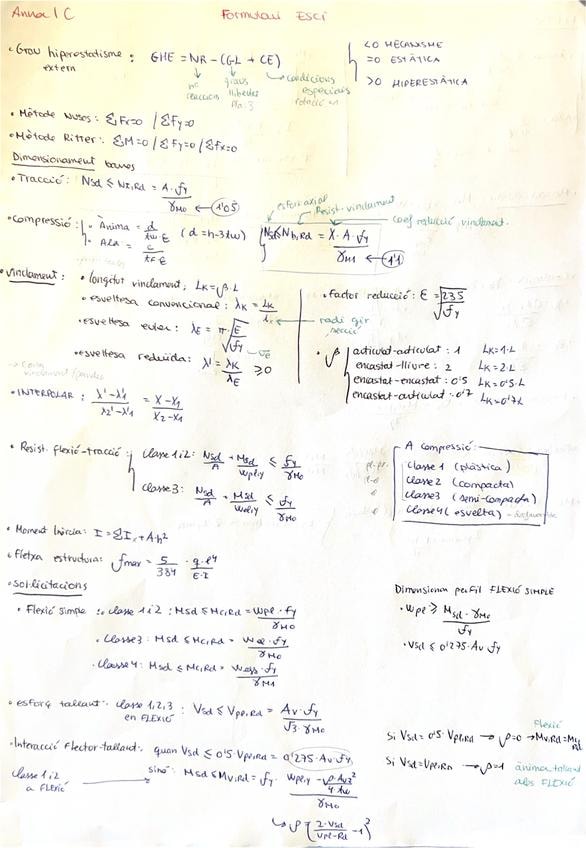 Anna IC
Formulari ESCI
• Grau hiperestatisme extern : GHE = NR - (GL + CE)
nº reaccions
graus llibertat
Pla: 3
condicions especials
rotació
<0 MECANISME
=0 ESTÀTICA
>0 HIPERESTÀTICA
• Mètode Nusos: ΣFx=0 / ΣFy=0
• Mètode Ritter: ΣM=0 / ΣFy=0 / ΣFx=0
Dimensionament barres
• Tracció: Nsd ≤ Nt,Rd = A·fy / γM0 ← 1'05
• Compressió: • Ànima = d / tw·ε (d = h-3tw)
• Ala = c / tf·ε
esforç axial
Resist. vinclament
coef reducció vinclament.
Nsd ≤ Nb,Rd = X·A·fy / γM1 ← 1'1
• Vinclament: • longitut vinclament: LK = β·L
• esveltesa convencional: λK = LK / i
radi gir secció
• esveltesa euler: λE = π·√E / √fy
• esveltesa reduïda: λ' = λK / λE ≥ 0
• Factor reducció: ε = √235 / √fy
• β
articulat-articulat: 1 LK=1·L
encastat-lliure: 2 LK=2·L
encastat-encastat: 0'5 LK=0'5·L
encastat-articulat: 0'7 LK=0'7L
• INTERPOLAR: λ'-λ'1 / λ'2-λ'1 = X-X1 / X2-X1
• Resist. flexió-tracció: Classe 1i2: Nsd/A + Msd/Wpl,y ≤ fy/γM0
Classe 3: Nsd/A + Msd/Wel,y ≤ fy/γM0
A compressió
Classe 1 (plàstica)
Classe 2 (compacta)
Classe 3 (semi-compacta)
Classe 4 (esvelta)
• Moment Inèrcia: I = ΣIx + A·h²
• Fletxa estructura: fmax = 5/384 · q·l⁴ / E·I
• Sol·licitacions
• Flexió simple: • Classe 1i2: Msd ≤ Mc,Rd = Wpl·fy / γM0
• Classe 3: Msd ≤ Mc,Rd = Wel·fy / γM0
• Classe 4: Msd ≤ Mc,Rd = Weff·fy / γM1
Dimensionar perfil FLEXIÓ SIMPLE
• Wpl ≥ Msd·γM0 / fy
• Vsd ≤ 0'275·Av·fy
• esforç tallant: Classe 1,2,3 en FLEXIÓ : Vsd ≤ Vpl,Rd = Av·fy / √3·γM0
• Interacció Flector-tallant: quan Vsd ≤ 0'5·Vpl,Rd = 0'275·Av·fy
Classe 1i2 a FLEXIÓ
sinó: Msd ≤ Mv,Rd = fy · Wpl,y - ρ·Av² / 4·tw / γM0
↳ ρ = (2·Vsd / Vpl·Rd - 1)²
Si Vsd = 0'5·Vpl,Rd → ρ=0 → Mv,Rd = Mc,Rd
Flexió
Si Vsd = Vpl,Rd → ρ=1
ànima tallant
als FLEXIÓ